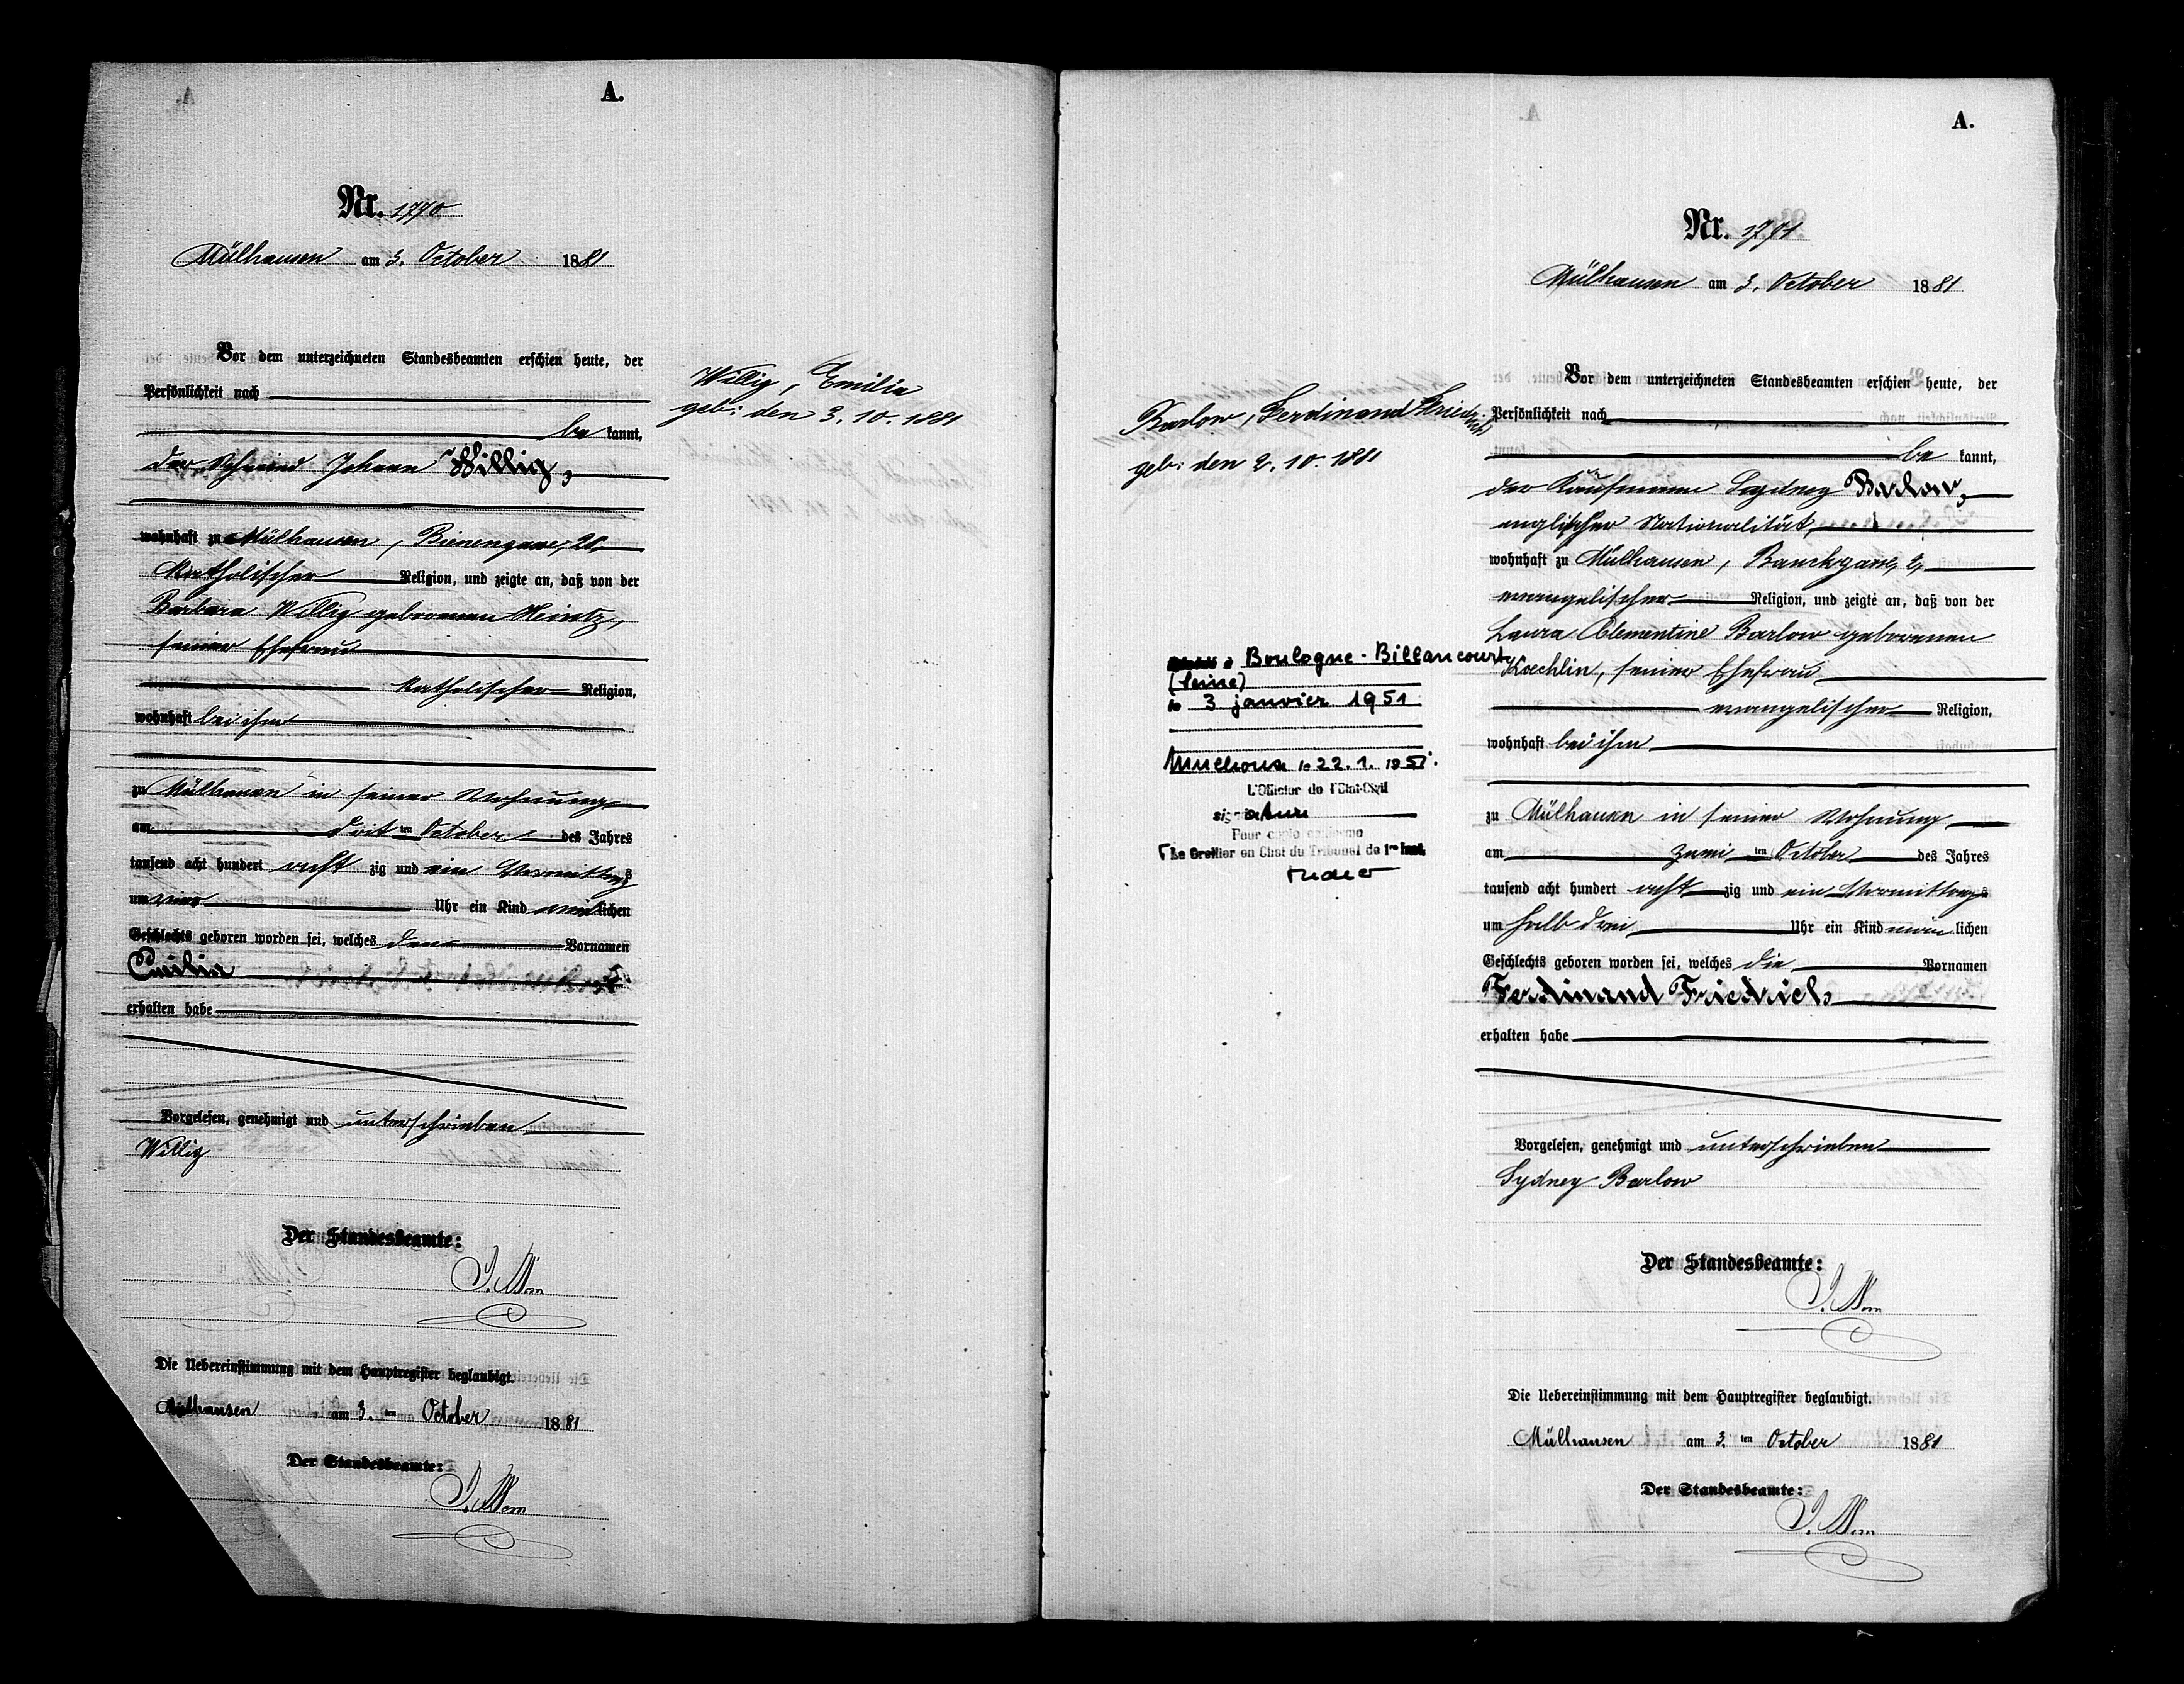 A.
Nr. 1770
Mülhausen am 3. October 1881
Vor dem unterzeichneten Standesbeamten erschien heute, der
Persönlichkeit nach
be kannt,
der Schmied Johann Willig,
wohnhaft zu Mülhausen, Bienengasse, 20,
katholischer Religion, und zeigte an, daß von der
Barbara Willig geborenen Heintz,
seiner Ehefrau
katholischer Religion,
wohnhaft bei ihm
zu Mülhausen in seiner Wohnung
am drit ten October des Jahres
tausend acht hundert acht zig und ein Vormittags
um vier Uhr ein Kind weiblichen
Geschlechts geboren worden sei, welches den Vornamen
Emilia
erhalten habe
Vorgelesen, genehmigt und unterschrieben
Willig
Der Standesbeamte:
Die Uebereinstimmung mit dem Hauptregister beglaubigt.
Mülhausen am 3. ten October 1881
Der Standesbeamte:
Willig, Emilia
geb: den 3. 10. 1881
A.
Nr. 1771
Mülhausen am 3. October 1881
Barlow, Ferdinand Friedrich
geb: den 2. 10. 1881
Boulogne-Billancourt
(Seine)
le 3 janvier 1951
Mulhouse le 22. 1. 1951.
L'Officier de l'Etat-Civil
signature
Pour copie conforme
Le Greffier en Chef du Tribunal de 1re Inst.
Vor dem unterzeichneten Standesbeamten erschien heute, der
Persönlichkeit nach
be kannt,
der Kaufmann Sydney Barlow,
englischer Nationalität,
wohnhaft zu Mülhausen, Bankgasse, 2,
evangelischer Religion, und zeigte an, daß von der
Laura Clementine Barlow geborenen
Koechlin, seiner Ehefrau
evangelischer Religion,
wohnhaft bei ihm
zu Mülhausen in seiner Wohnung
am zwei ten October des Jahres
tausend acht hundert acht zig und ein Vormittags
um halb drei Uhr ein Kind männlichen
Geschlechts geboren worden sei, welches die Vornamen
Ferdinand Friedrich
erhalten habe
Vorgelesen, genehmigt und unterschrieben
Sydney Barlow
Der Standesbeamte:
Die Uebereinstimmung mit dem Hauptregister beglaubigt.
Mülhausen am 3. ten October 1881
Der Standesbeamte: